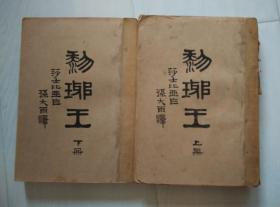 黎琊王
莎士比亞著
孫大雨譯
上册
黎琊王
莎士比亞著
孫大雨譯
下册